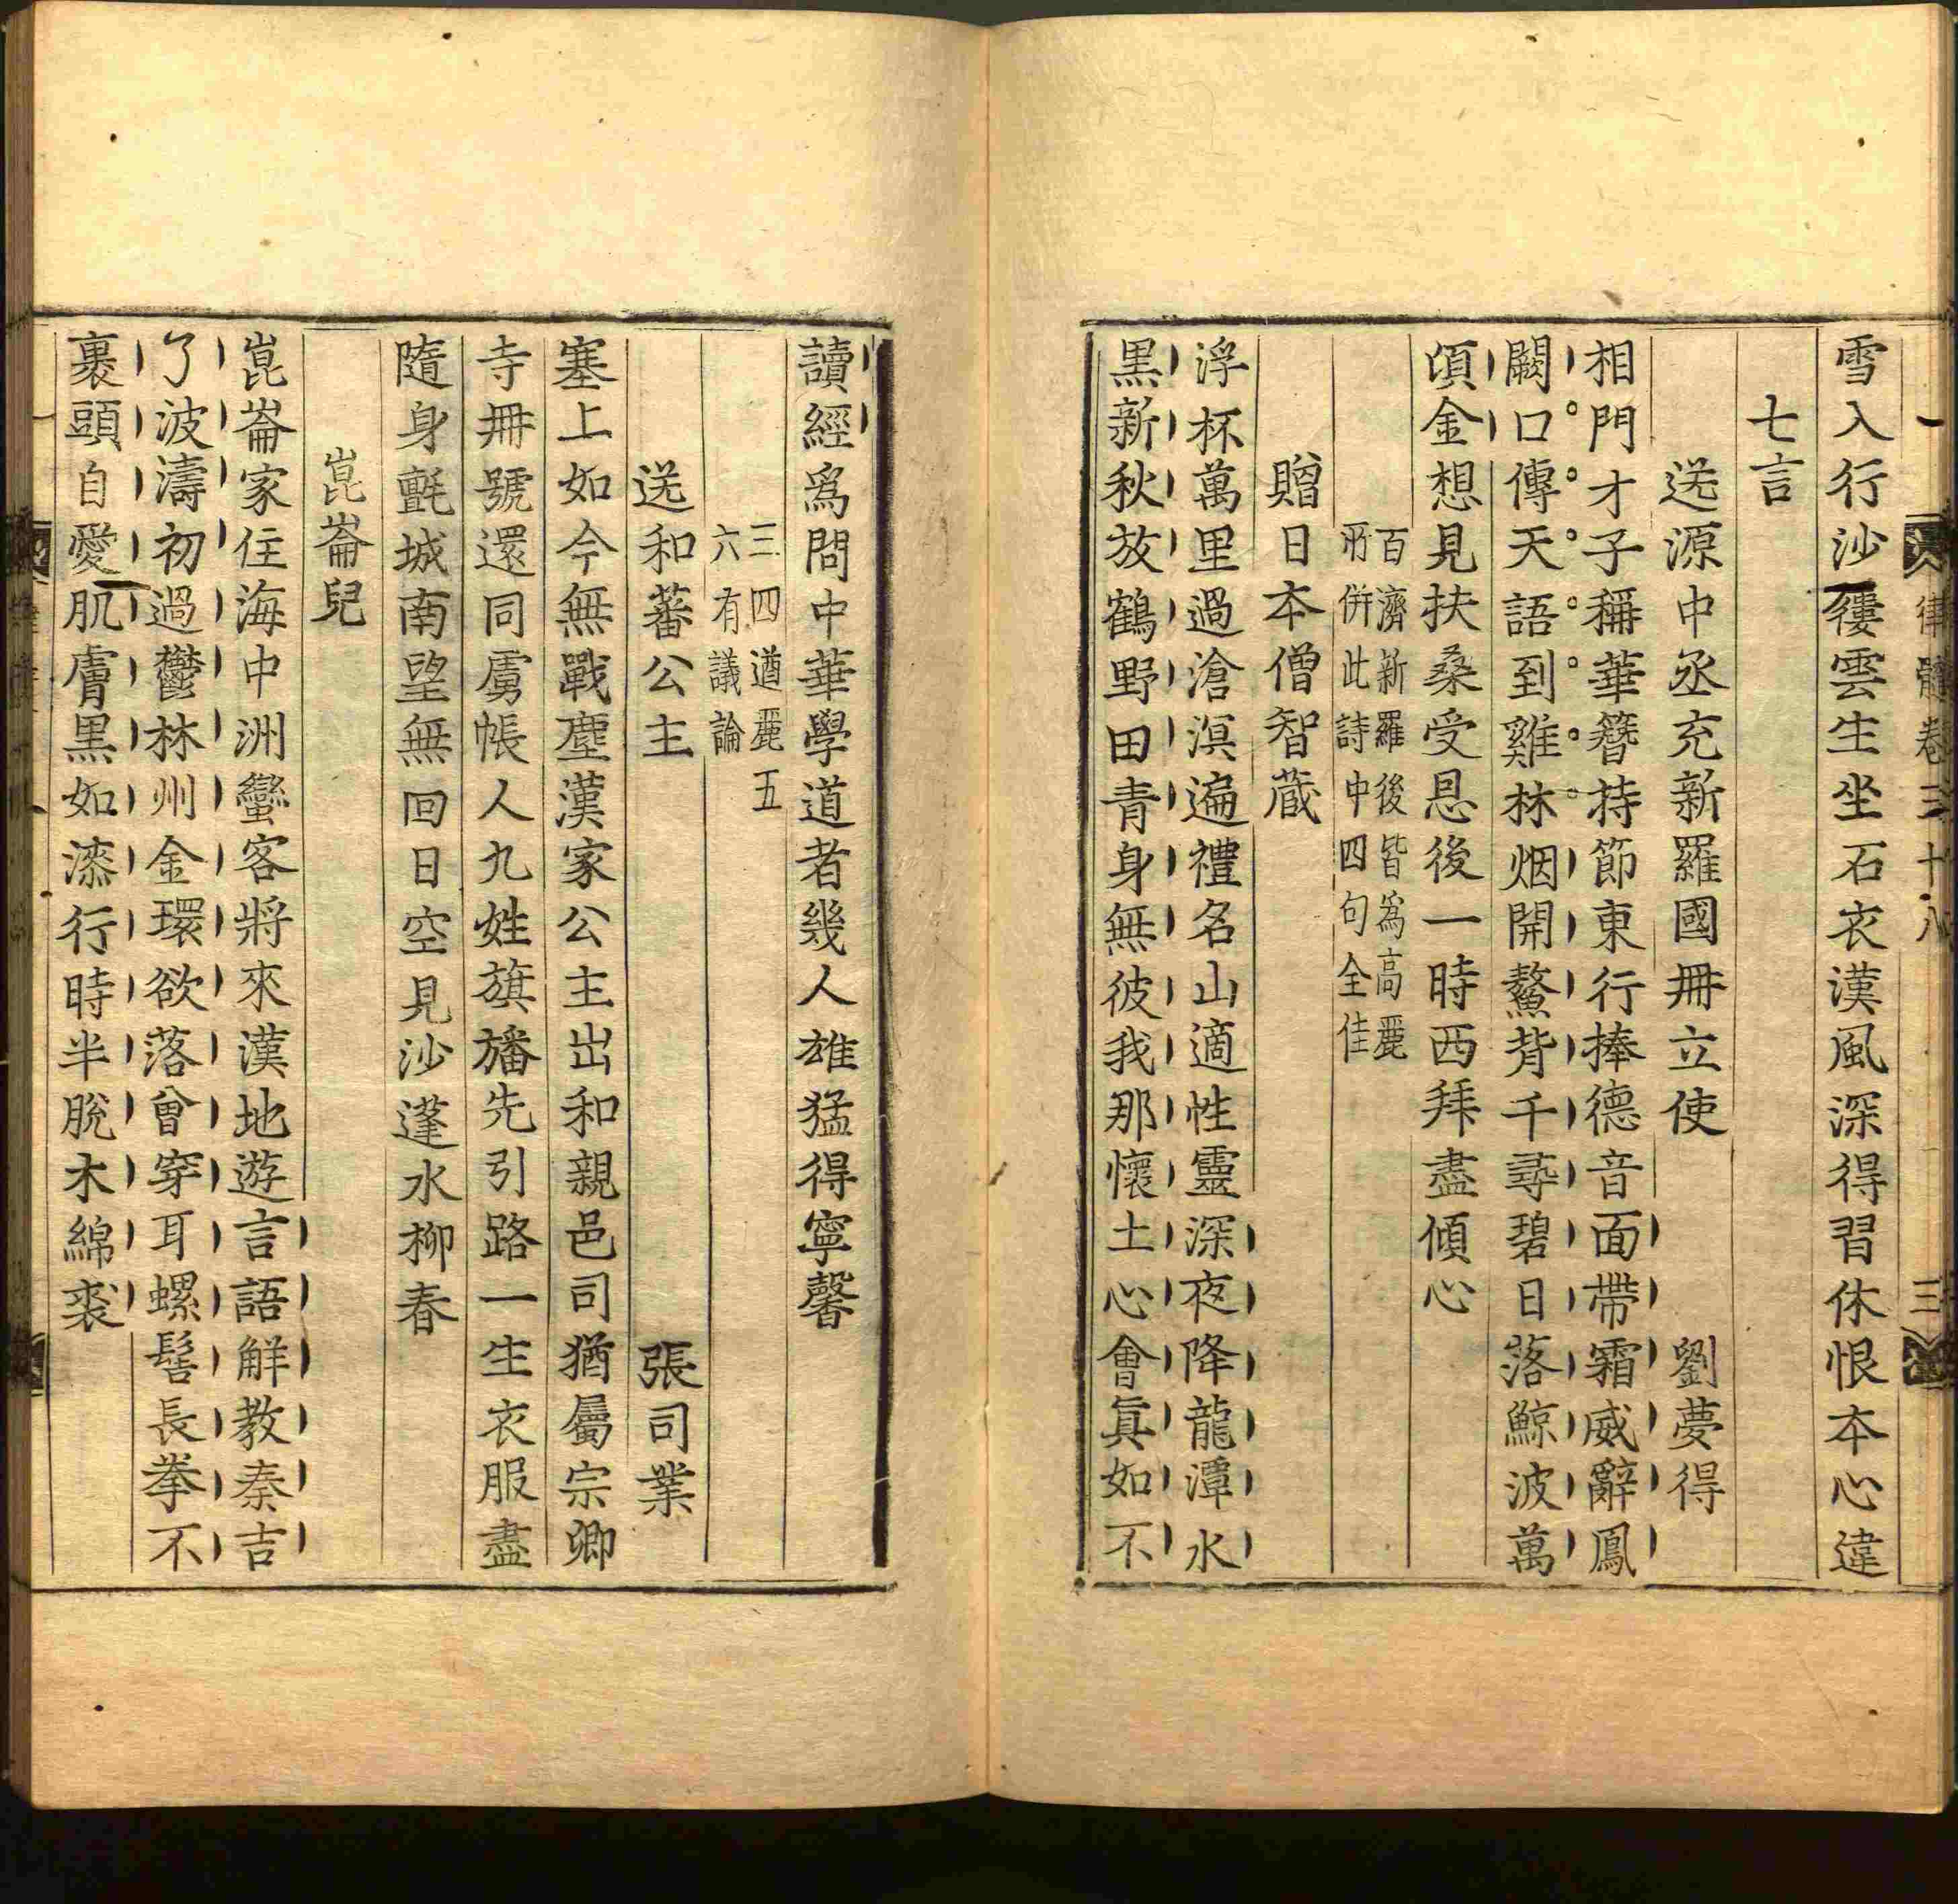 律髓卷三十八 三
雪入行沙屨雲生坐石衣漢風深得習休恨本心違
七言
送源中丞充新羅國冊立使 劉夢得
相門才子稱華簪持節東行捧德音面帶霜威辭鳳
闕口傳天語到雞林烟開鰲背千尋碧日落鯨波萬
頃金想見扶桑受恩後一時西拜盡傾心
百濟新羅後皆為高麗
所併此詩中四句全佳
贈日本僧智蔵
浮杯萬里過滄溟遍禮名山適性靈深夜降龍潭水
黑新秋放鶴野田青身無彼我那懷土心會眞如不
讀經爲問中華學道者幾人雄猛得寧馨
三四遒麗五
六有議論
送和蕃公主 張司業
塞上如今無戰塵漢家公主出和親邑司猶屬宗卿
寺冊號還同虜帳人九姓旗旛先引路一生衣服盡
隨身氈城南望無回日空見沙蓬水柳春
崑崙兒
崑崙家住海中洲蠻客將來漢地遊言語解教秦吉
了波濤初過鬱林州金環欲落曾穿耳螺髻長拳不
裹頭自愛肌膚黑如漆行時半脫木綿裘